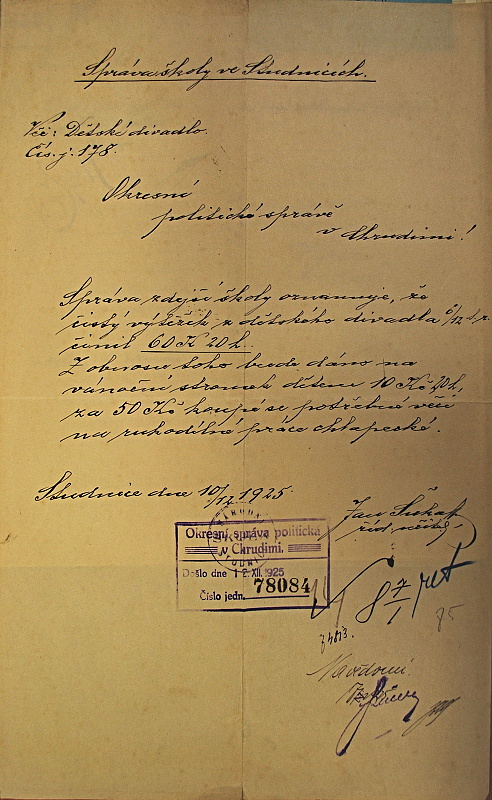 Správa školy ve Studnicích.
Věc: Dětské divadlo.
Čís. j. 178.
Okresní
politické správě
v Chrudimi!
Správa zdejší školy oznamuje, že
čistý výtěžek z dětského divadla 6/12 t. r.
činil 60 K 20 h.
Z obnosu toho bude dáno na
vánoční stromek dětem 10 Kč 20 h,
za 50 Kč koupí se potřebné věci
na ruhodílné práce chlapecké.
Studnice dne 10/12 1925.
Jan
říd. učitel
Okresní správa politická
v Chrudimi.
Došlo dne 12. XII. 1925
Číslo jedn. 78084
8 7/1
85
74813.
Na vědomí